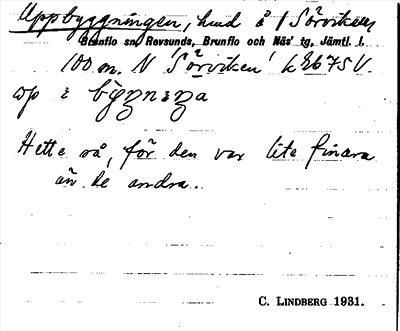 Uppbyggningen, hud å 1 Sörviken
Brunflo sn, Revsunds, Brunflo och Näs' tg, Jämtl. l.
100 m. N Sörviken k 86 75 V.
op
Hette så, för den var lite finara
än de andra..
C. LINDBERG 1931.